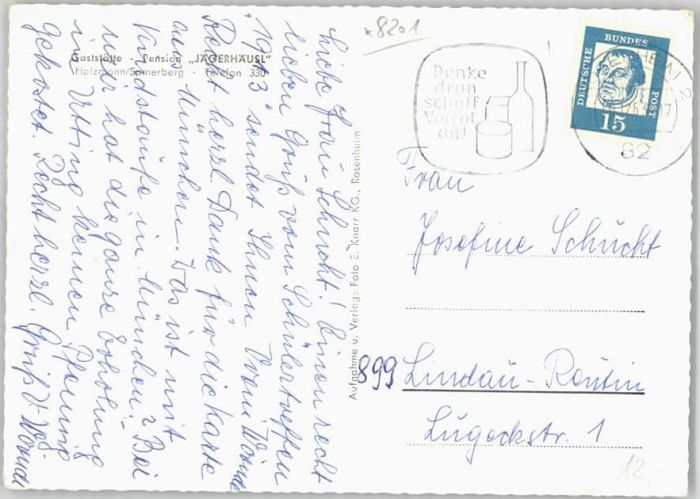 Gaststätte - Pension „JÄGERHÄUSL"
Holzmann/Samerberg - Telefon 330
Liebe Frau Schücht! Einen recht
lieben Gruß vom Schülertreffen
1963 sendet Ihnen
Recht herzl. Dank für die Karte
aus München. Das ist mit
in München? Bei
mir hat die ganze Erholung
in Utting keinen Pfennig
gekostet. Recht herzl. Gruß
Aufnahme u. Verlag: Foto E. Knarr KG., Rosenheim
x 8201
Denke
dran
schaff
Vorrat
an!
DEUTSCHE BUNDESPOST
15
82
Frau
Josefine Schücht
899 Lindau-Reutin
Lugeckstr. 1
12,-